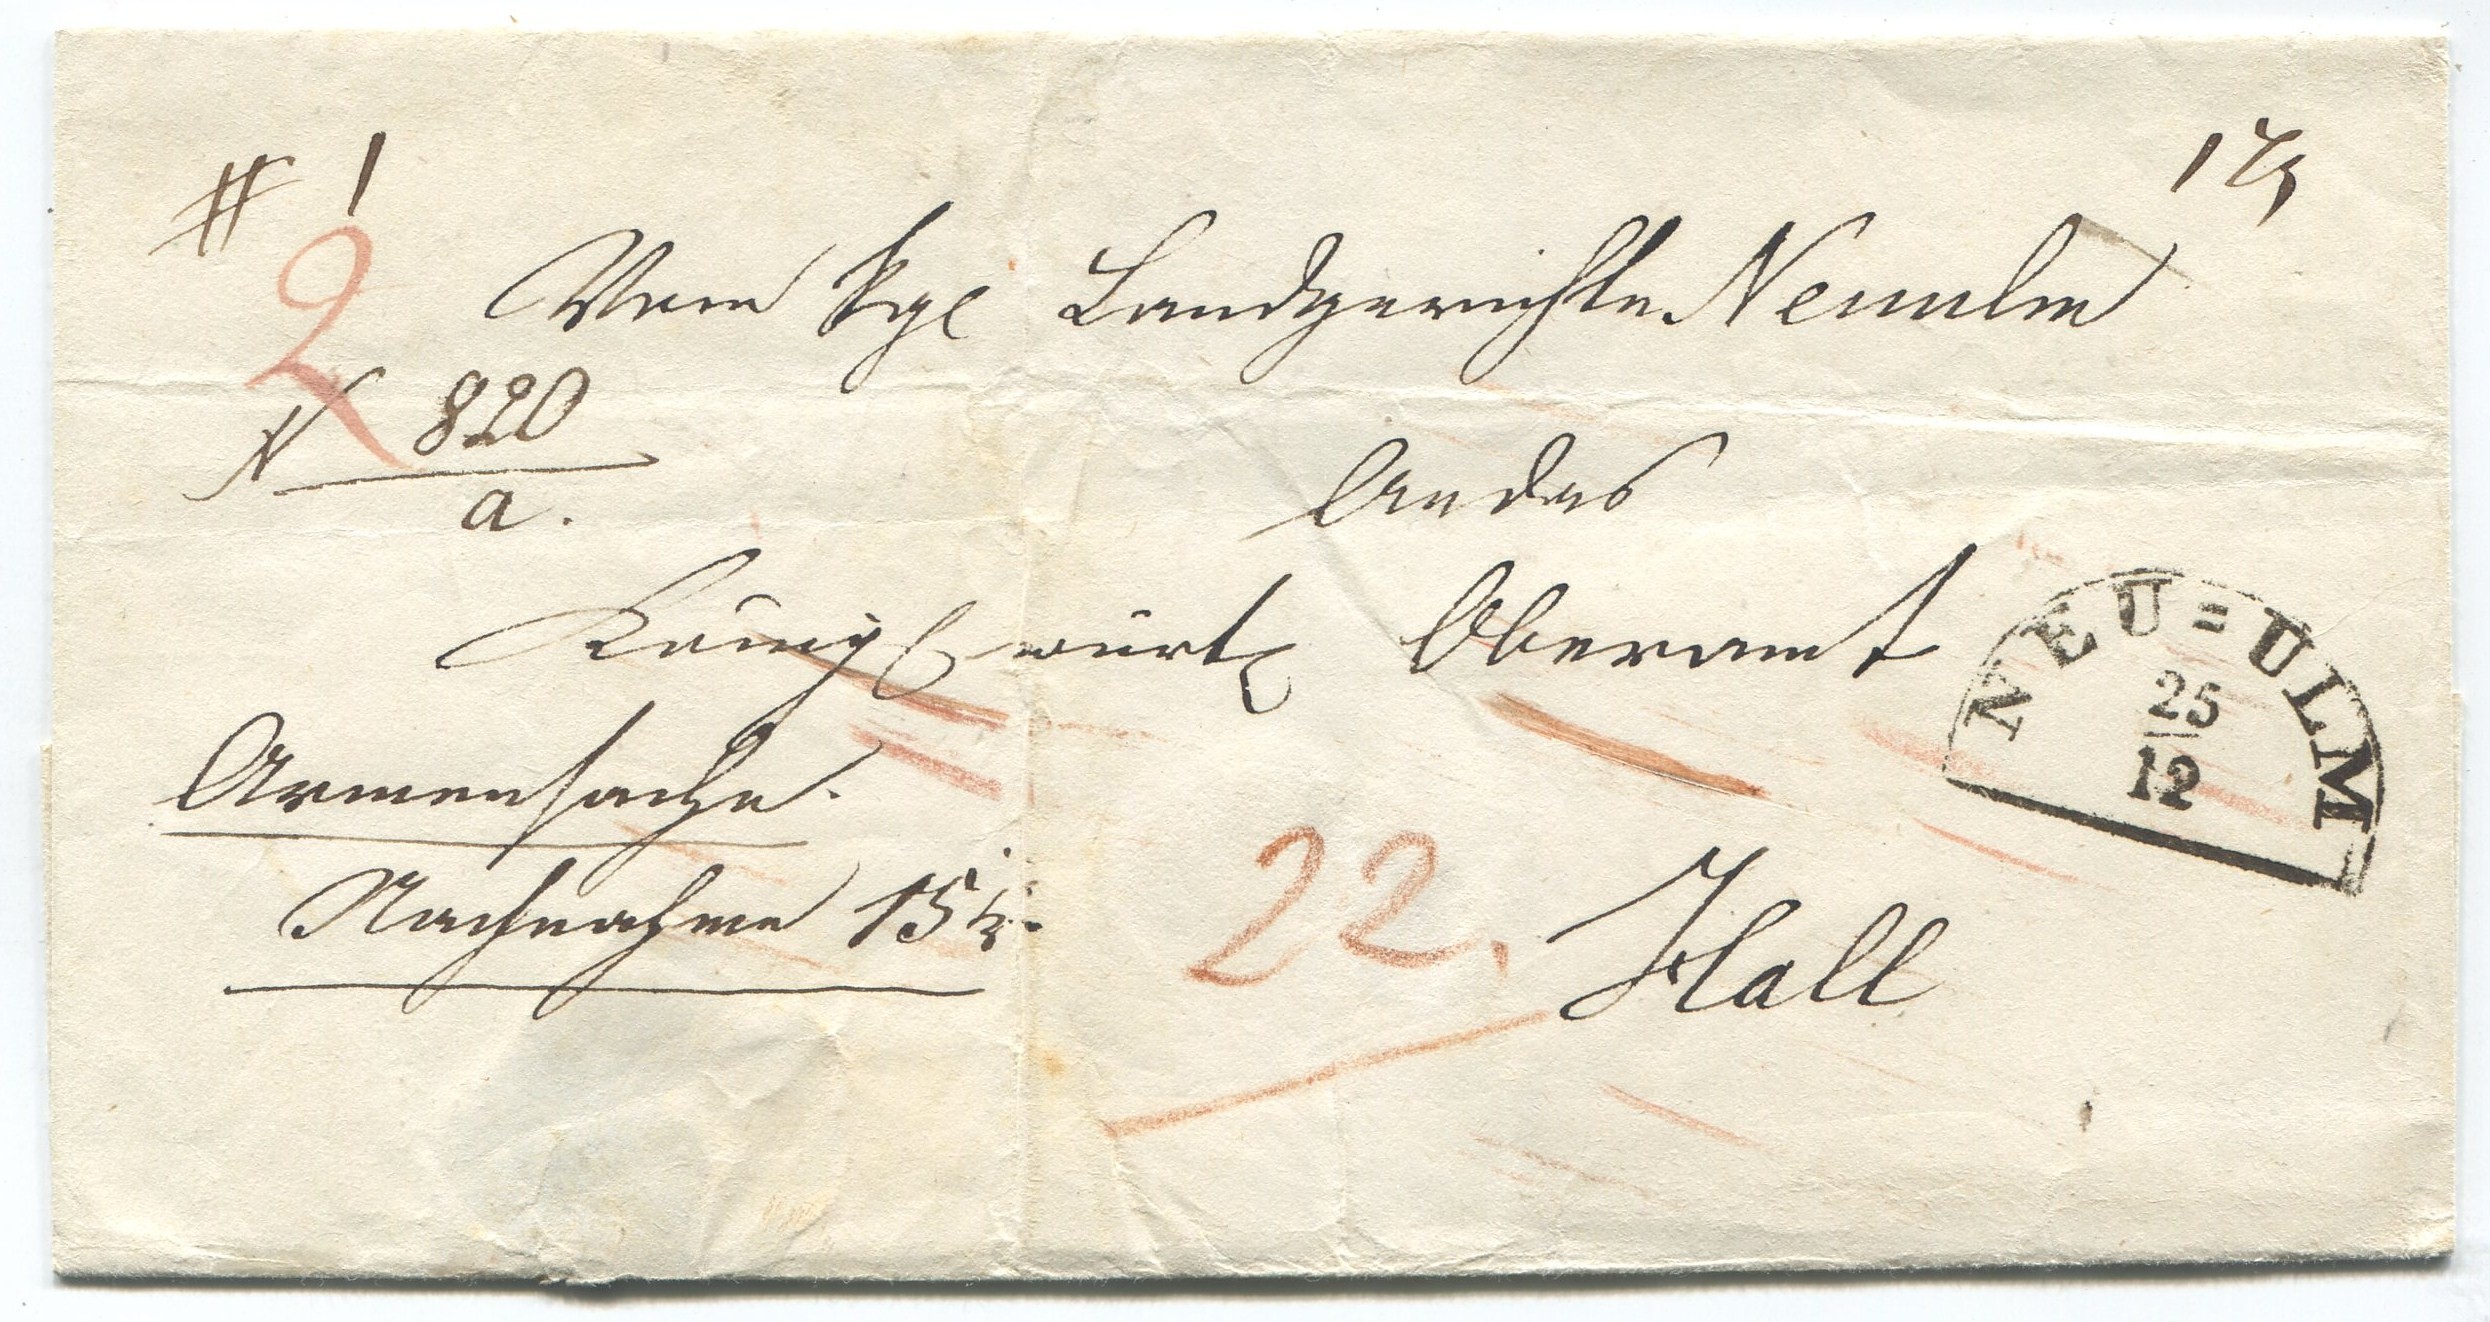 # 1
2
Vom kgl Landgerichte Neuulm
N 820
a.
An das
Königl würt Oberamt
NEU=ULM
25
12
Armensache.
Nachnahme 15 x.
22.
Hall